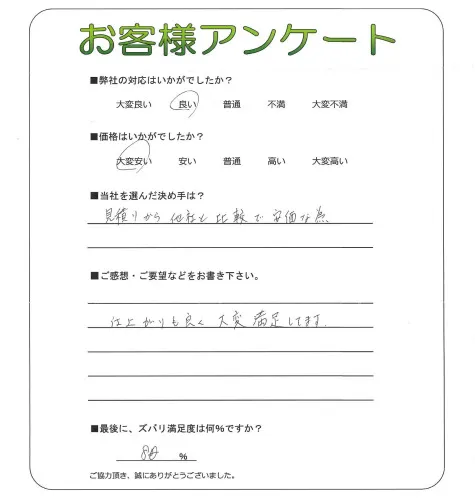 お客様アンケート
■弊社の対応はいかがでしたか？
大変良い 良い 普通 不満 大変不満
■価格はいかがでしたか？
大変安い 安い 普通 高い 大変高い
■当社を選んだ決め手は？
見積りから他社と比較で安価な点
■ご感想・ご要望などをお書き下さい。
仕上がりも良く 大変 満足してます.
■最後に、ズバリ満足度は何%ですか？
%
ご協力頂き、誠にありがとうございました。